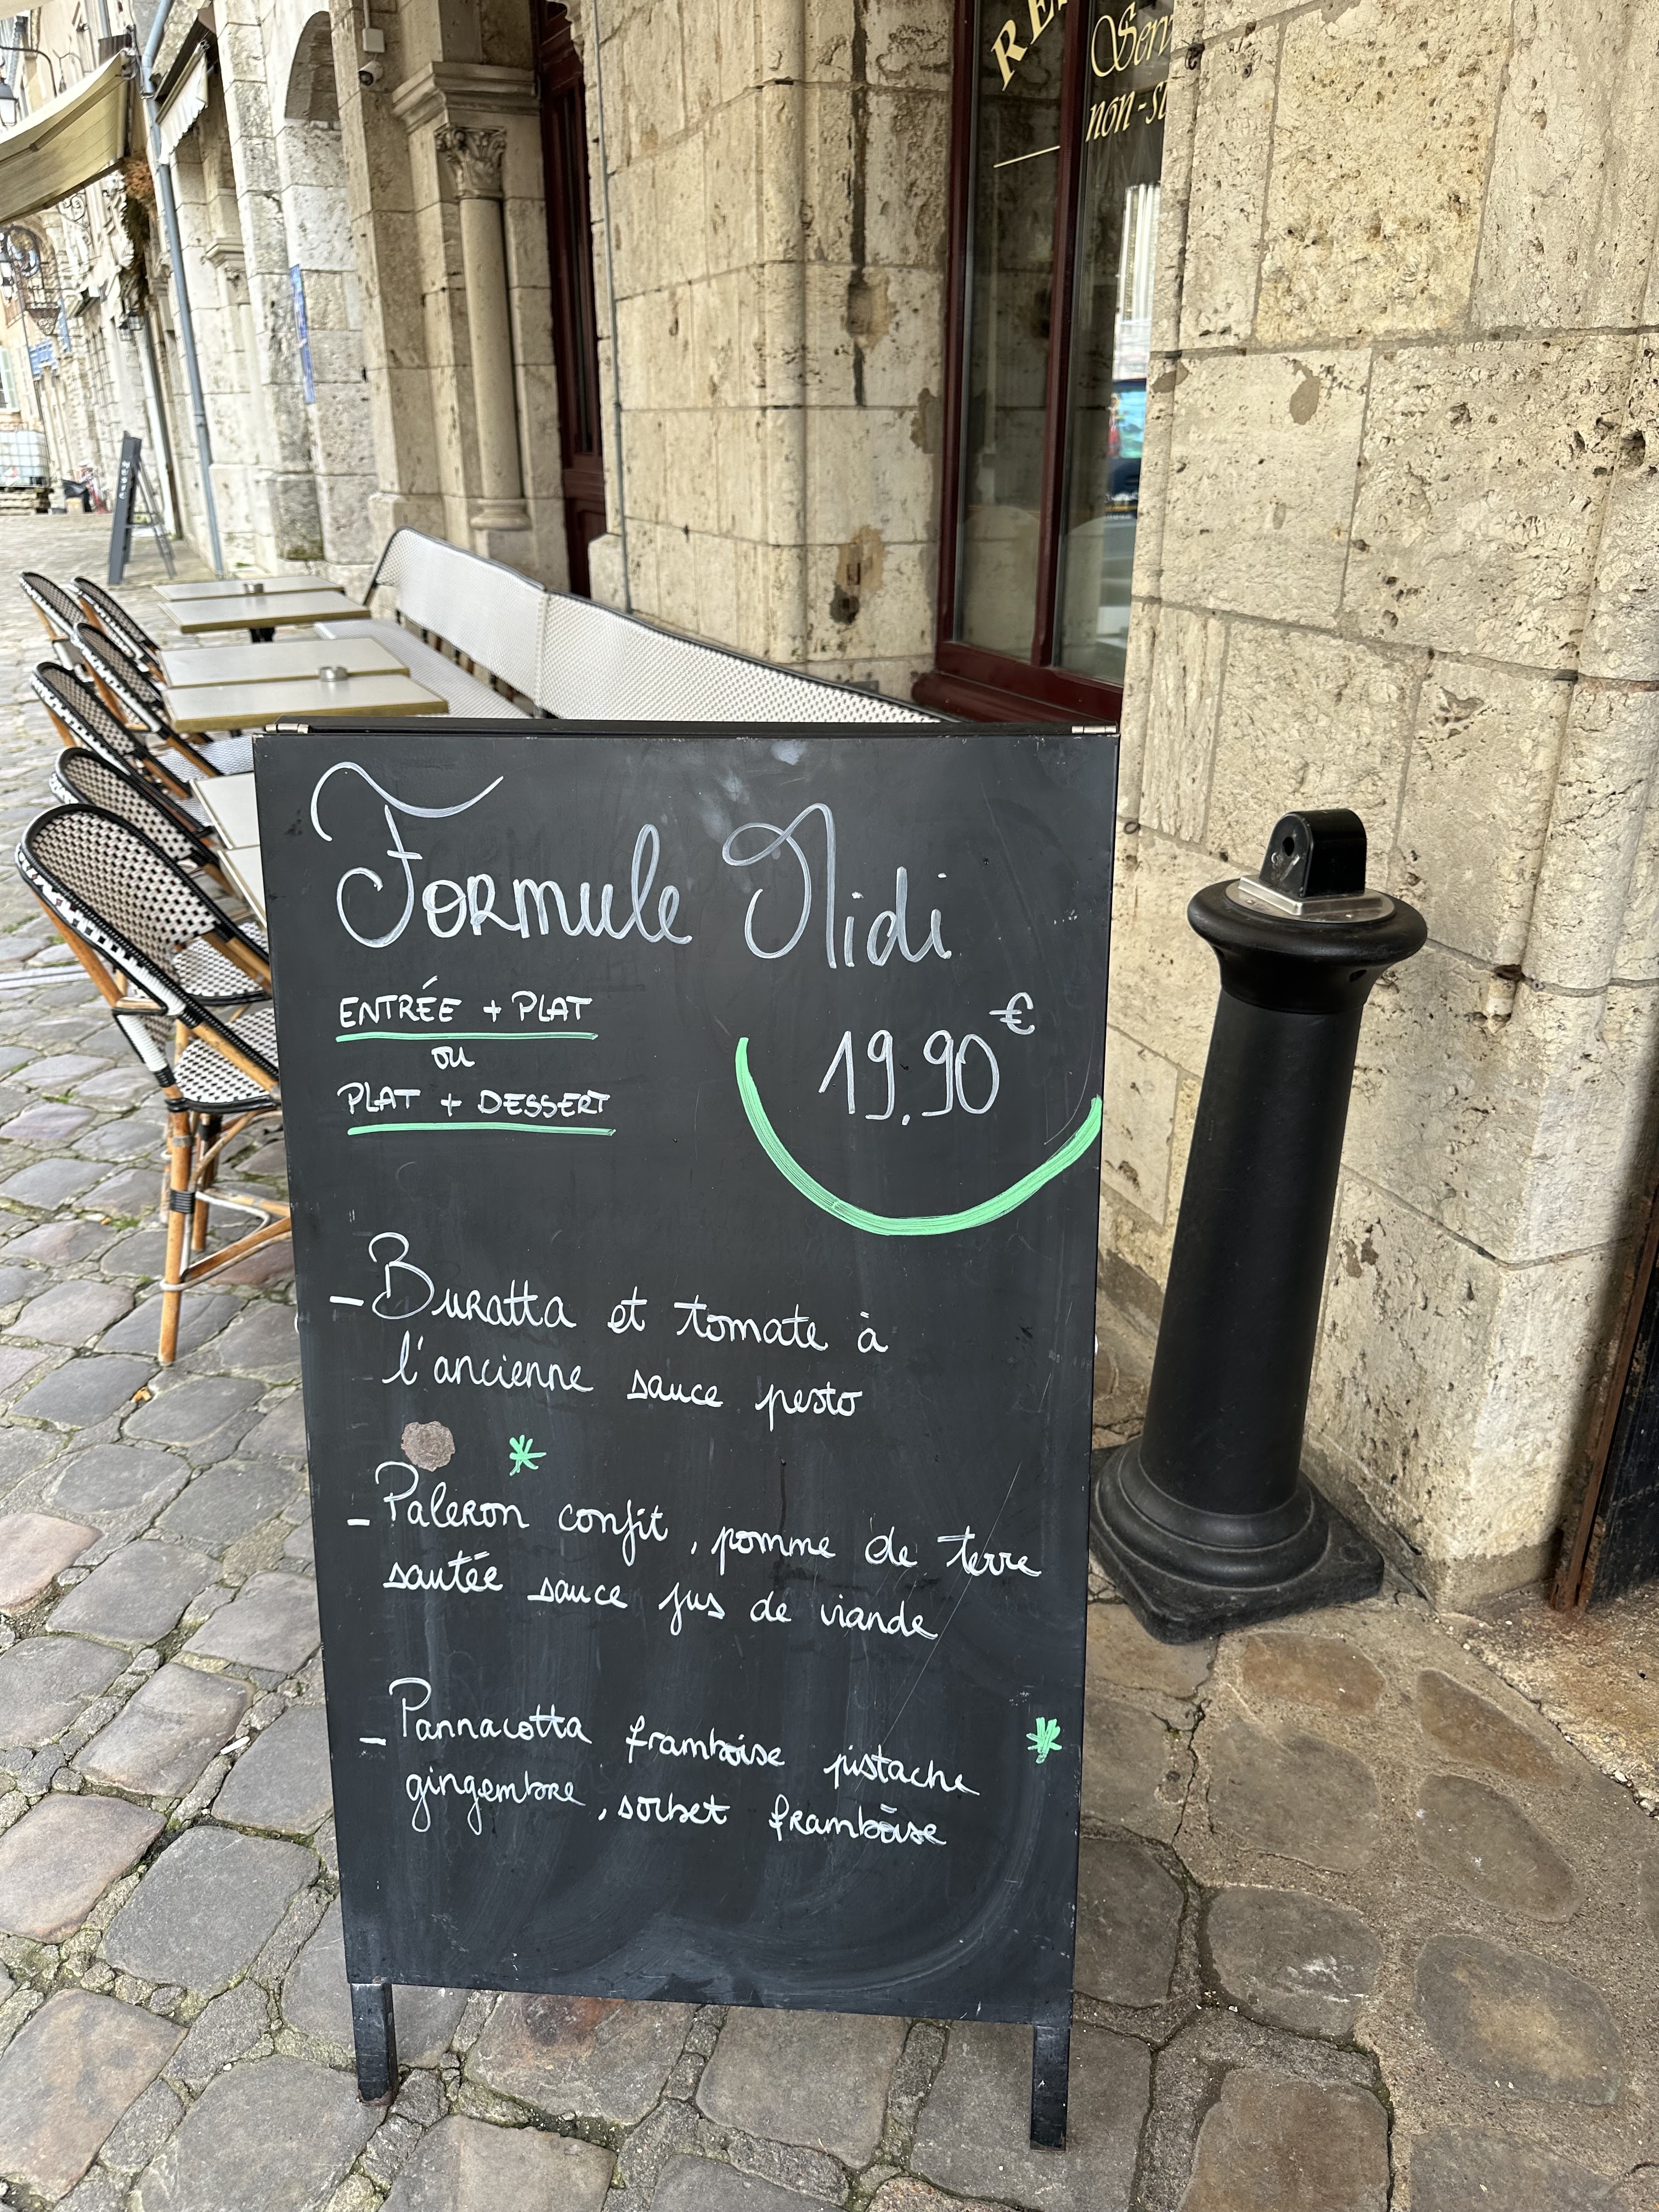 Serv
non-st
Formule Midi
ENTRÉE + PLAT
ou
PLAT + DESSERT
19.90€
- Buratta et tomate à
l'ancienne sauce pesto
- Paleron confit, pomme de terre
sautée sauce jus de viande
- Pannacotta framboise pistache
gingembre, sorbet framboise